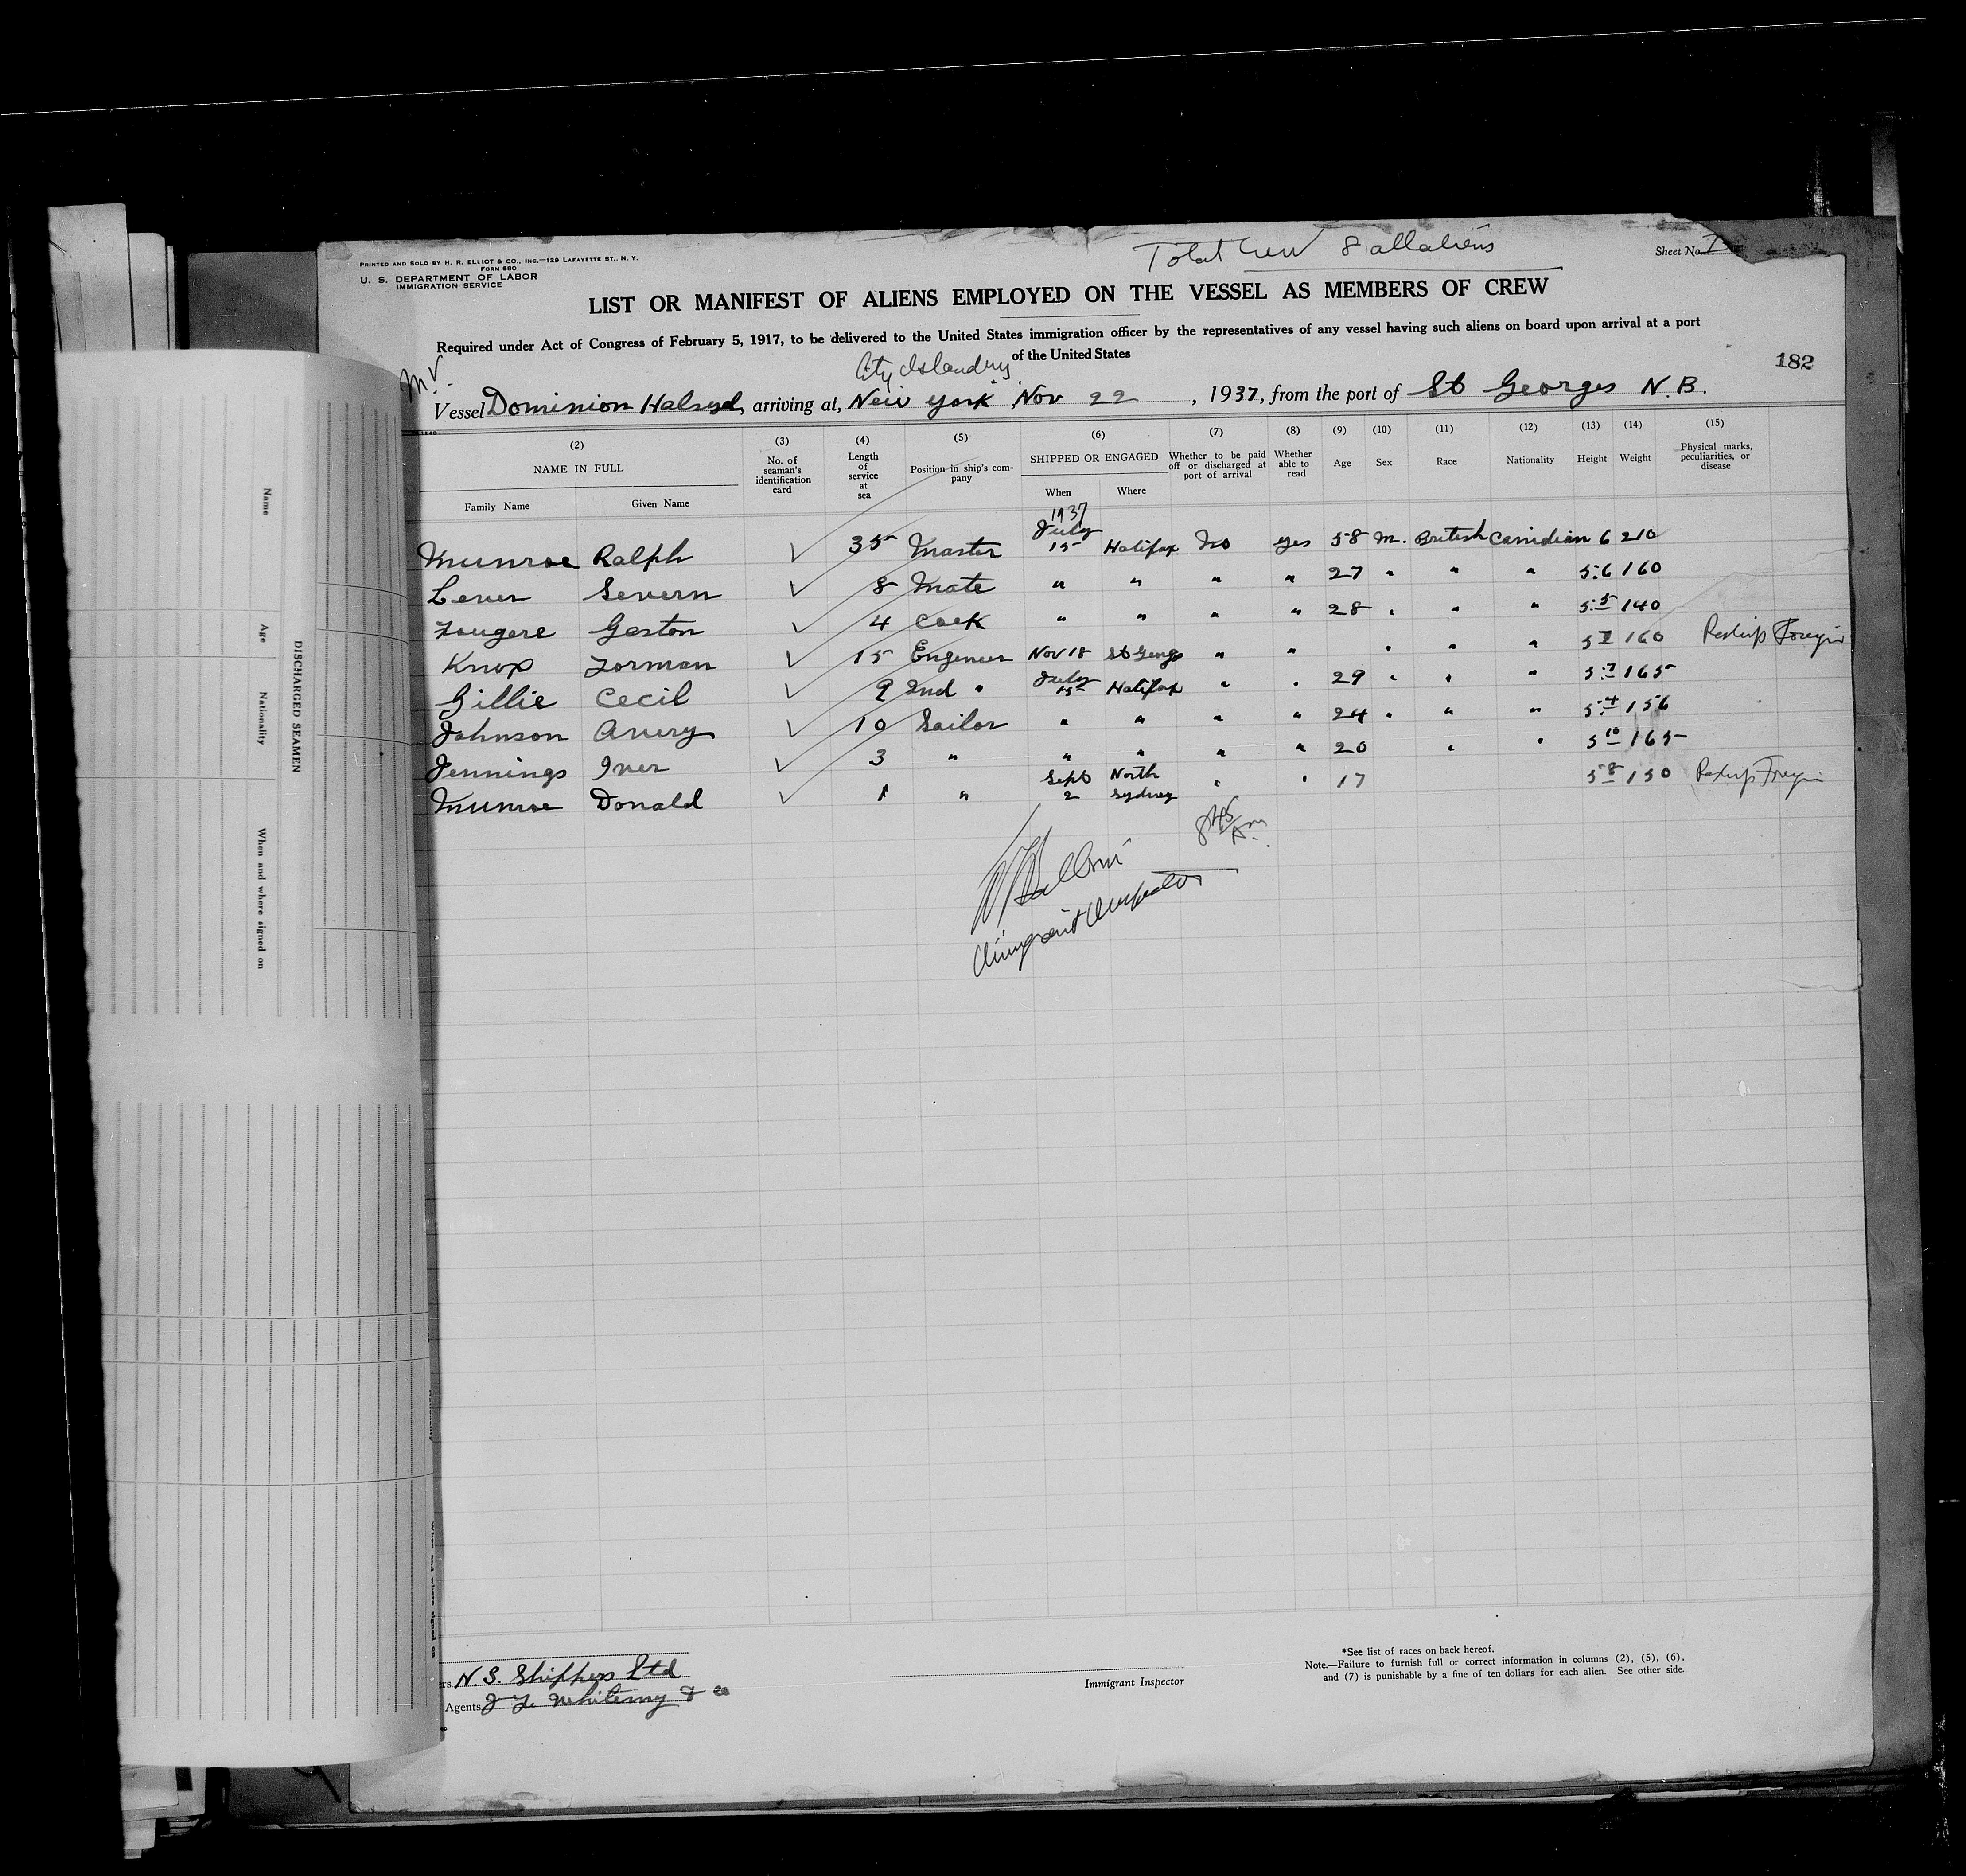 Total Crew 8 all aliens
Sheet No. 1
PRINTED AND SOLD BY H. R. ELLIOT & CO., INC.—129 LAFAYETTE ST., N. Y.
FORM 680
U. S. DEPARTMENT OF LABOR
IMMIGRATION SERVICE
LIST OR MANIFEST OF ALIENS EMPLOYED ON THE VESSEL AS MEMBERS OF CREW
Required under Act of Congress of February 5, 1917, to be delivered to the United States immigration officer by the representatives of any vessel having such aliens on board upon arrival at a port
of the United States
182
City Island Ny
M.V.
Vessel Dominion Halsyd, arriving at, New York Nov 22, 1937, from the port of St Georges N.B.
(2) (3) (4) (5) (6) (7) (8) (9) (10) (11) (12) (13) (14) (15)
NAME IN FULL No. of seaman's identification card Length of service at sea Position in ship's company SHIPPED OR ENGAGED Whether to be paid off or discharged at port of arrival Whether able to read Age Sex Race Nationality Height Weight Physical marks, peculiarities, or disease
Family Name Given Name When Where
1937
Munroe Ralph ✓ 35 Master July 15 Halifax No yes 58 M. British Canidian 6 210
Lever Severn ✓ 8 Mate " " " " 27 " " " 5:6 160
Fougere Gaston ✓ 4 Cook " " " " 28 " " " 5:5 140
Knop Forman ✓ 15 Engeneer Nov 18 St Georges " " " " " 5 7 160
Gillie Cecil ✓ 9 2nd " July 15 Halifax " " 29 " " " 5:7 165
Johnson Avery ✓ 10 Sailor " " " " 24 " " " 5:4 156
Jennings Iver ✓ 3 " " " " " 20 " " 5 10 165
Munroe Donald ✓ 1 " Sept 2 North Sydney " " 17 5 8 150
8 45 Am.
Immigrant Inspector
DISCHARGED SEAMEN
Name Age Nationality When and where signed on
rs N.S. Shippers Ltd
Agents J F Whitemy & Co
Immigrant Inspector
*See list of races on back hereof.
Note.—Failure to furnish full or correct information in columns (2), (5), (6),
and (7) is punishable by a fine of ten dollars for each alien. See other side.